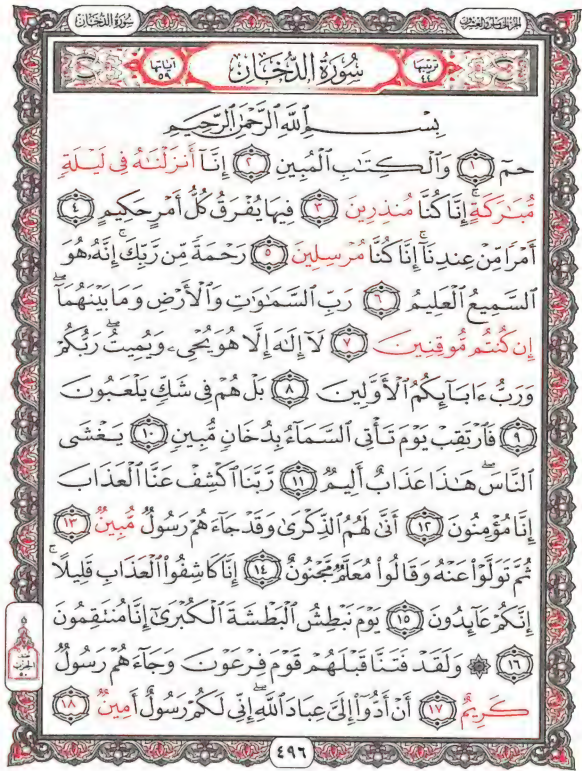 سُورَةُ الدُّخَانِ الجُزءُ الخَامِسُ وَالعِشرُونَ
ترتيبها ٤٤ سُورَةُ الدُّخَانِ آياتها ٥٩
بِسْمِ ٱللَّهِ ٱلرَّحْمَٰنِ ٱلرَّحِيمِ
حمٓ ١ وَٱلْكِتَٰبِ ٱلْمُبِينِ ٢ إِنَّآ أَنزَلْنَٰهُ فِى لَيْلَةٍ
مُّبَٰرَكَةٍ ۚ إِنَّا كُنَّا مُنذِرِينَ ٣ فِيهَا يُفْرَقُ كُلُّ أَمْرٍ حَكِيمٍ ٤
أَمْرًا مِّنْ عِندِنَآ ۚ إِنَّا كُنَّا مُرْسِلِينَ ٥ رَحْمَةً مِّن رَّبِّكَ ۚ إِنَّهُۥ هُوَ
ٱلسَّمِيعُ ٱلْعَلِيمُ ٦ رَبِّ ٱلسَّمَٰوَٰتِ وَٱلْأَرْضِ وَمَا بَيْنَهُمَآ ۖ
إِن كُنتُم مُّوقِنِينَ ٧ لَآ إِلَٰهَ إِلَّا هُوَ يُحْىِۦ وَيُمِيتُ ۖ رَبُّكُمْ
وَرَبُّ ءَابَآئِكُمُ ٱلْأَوَّلِينَ ٨ بَلْ هُمْ فِى شَكٍّ يَلْعَبُونَ
٩ فَٱرْتَقِبْ يَوْمَ تَأْتِى ٱلسَّمَآءُ بِدُخَانٍ مُّبِينٍ ١٠ يَغْشَى
ٱلنَّاسَ ۖ هَٰذَا عَذَابٌ أَلِيمٌ ١١ رَّبَّنَا ٱكْشِفْ عَنَّا ٱلْعَذَابَ
إِنَّا مُؤْمِنُونَ ١٢ أَنَّىٰ لَهُمُ ٱلذِّكْرَىٰ وَقَدْ جَآءَهُمْ رَسُولٌ مُّبِينٌ ١٣
ثُمَّ تَوَلَّوْا۟ عَنْهُ وَقَالُوا۟ مُعَلَّمٌ مَّجْنُونٌ ١٤ إِنَّا كَاشِفُوا۟ ٱلْعَذَابِ قَلِيلًا ۚ
إِنَّكُمْ عَآئِدُونَ ١٥ يَوْمَ نَبْطِشُ ٱلْبَطْشَةَ ٱلْكُبْرَىٰٓ إِنَّا مُنتَقِمُونَ
١٦ ۞ وَلَقَدْ فَتَنَّا قَبْلَهُمْ قَوْمَ فِرْعَوْنَ وَجَآءَهُمْ رَسُولٌ
كَرِيمٌ ١٧ أَنْ أَدُّوٓا۟ إِلَىَّ عِبَادَ ٱللَّهِ ۖ إِنِّى لَكُمْ رَسُولٌ أَمِينٌ ١٨
٤٩٦